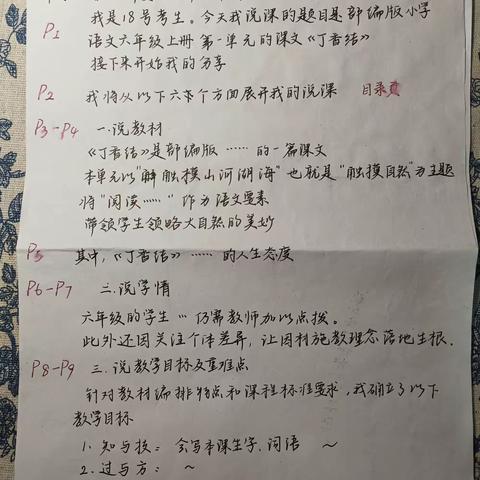 我是18号考生。今天我说课的题目是部编版小学
P1 语文六年级上册第一单元的课文《丁香结》
接下来开始我的分享
P2 我将从以下六个方面展开我的说课 目录页
P3-P4 一.说教材
《丁香结》是部编版……的一篇课文
本单元以"触摸山河湖海"也就是"触摸自然"为主题
将"阅读……"作为语文要素
带领学生领略大自然的美妙
P5 其中,《丁香结》……的人生态度
P6-P7 二.说学情
六年级的学生…仍需教师加以点拨。
此外还因关注个体差异,让因材施教理念落地生根.
P8-P9 三.说教学目标及重难点
针对教材编排特点和课程标准要求,我确立了以下
教学目标
1.知与技:会写本课生字.词语 ~
2.过与方: ~